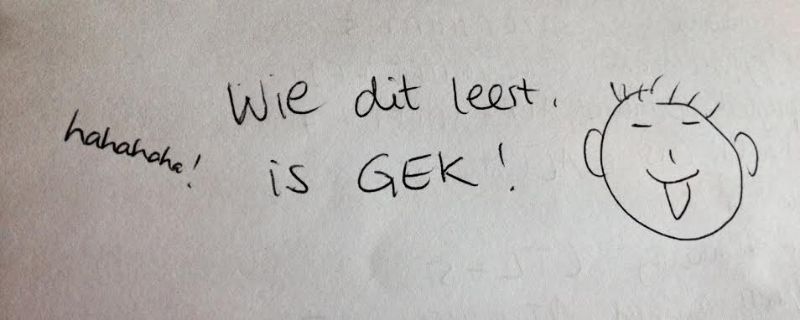 Wie dit leest,
is GEK!
hahahaha!